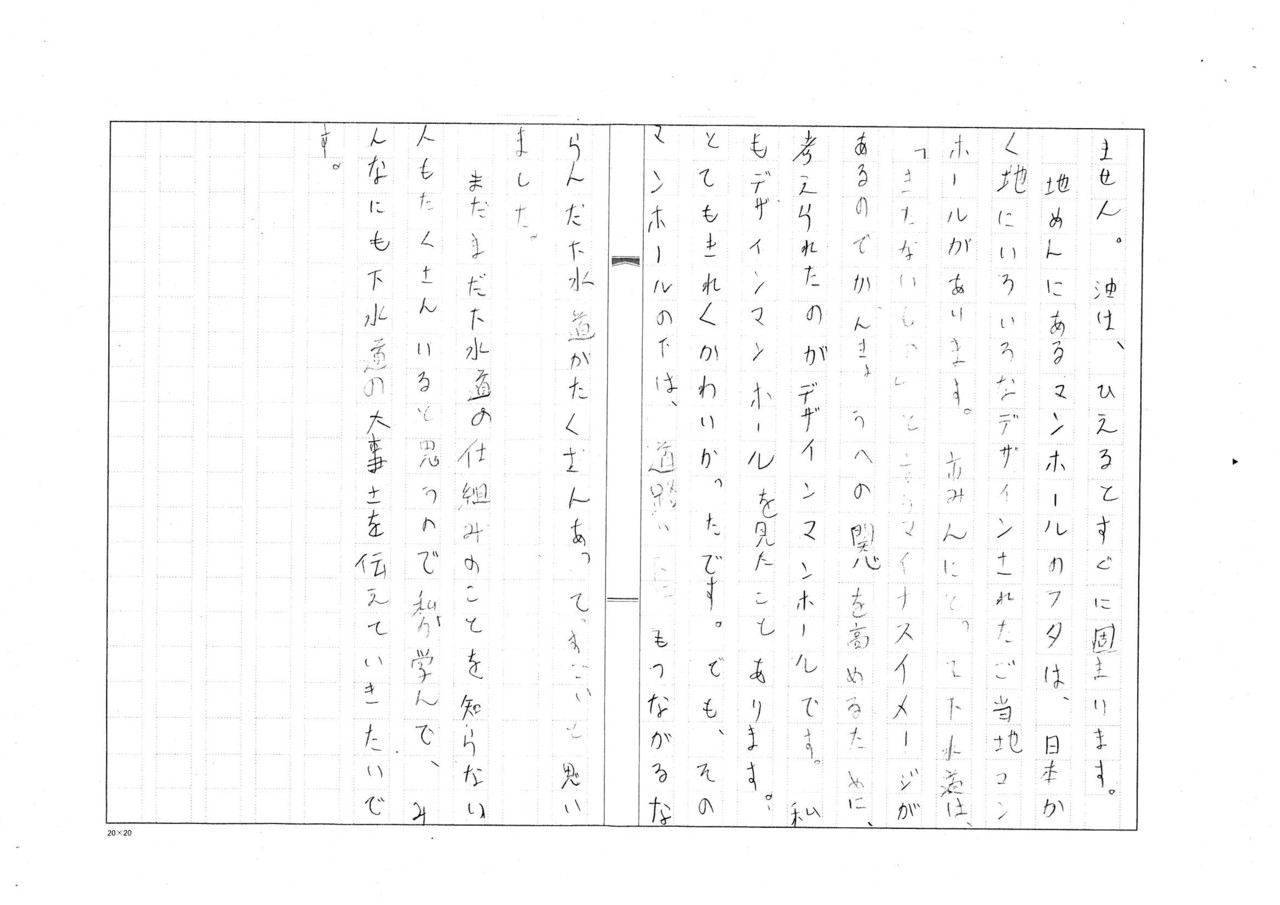 ません。油は、ひえるとすぐに固まります。
地めんにあるマンホールのフタは、日本か
く地にいろいろなデザインされたご当地コン
ホールがあります。市みんにとって下水道は、
「きたないもの」と言うマイナスイメージが
あるのでかんきょうへの関心を高めるために、
考えられたのがデザインマンホールです。私
もデザインマンホールを見たことあります。
とてもきれくかわいかったです。でも、その
マンホールの下は、道路いもつながるな
らんだ下水道がたくさんあって、すごいと思い
ました。
まだまだ下水道の仕組みのことを知らない
人もたくさんいると思うので私が学んで、み
んなにも下水道の大事さを伝えていきたいで
す。
20×20